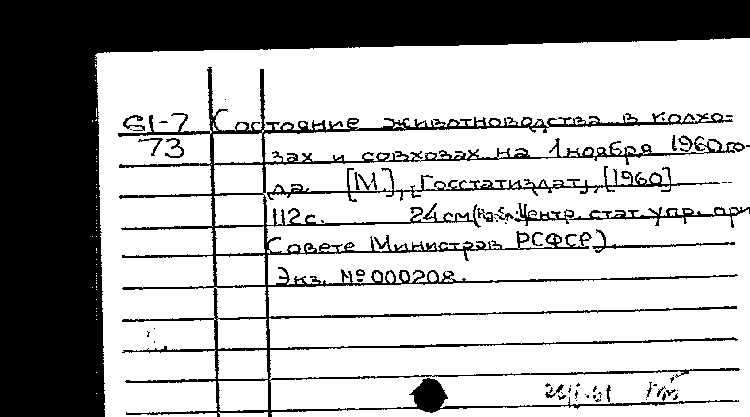 61-7 Состояние животноводства в колхо-
73 зах и совхозах на 1 ноября 1960 го-
да. [М.], [Госстатиздат], [1960]
112 с. 24 см (Центр. стат. упр. при
Совете Министров РСФСР).
Экз. № 000208.